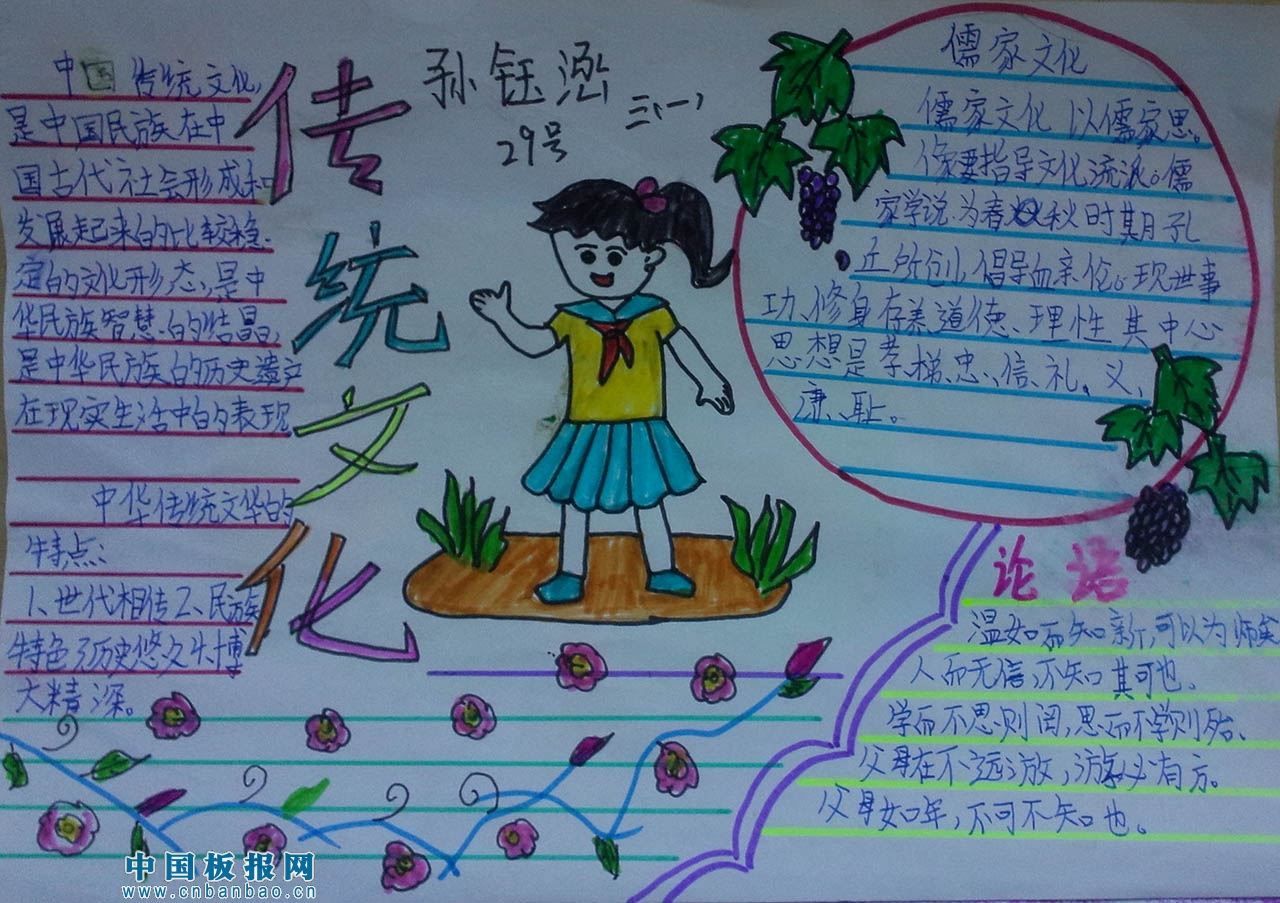 中国传统文化,
是中国民族在中
国古代社会形成和
发展起来的比较稳
定的文化形态,是中
华民族智慧的结晶,
是中华民族的历史遗产
在现实生活中的表现
中华传统文华的
特点:
1、世代相传2、民族
特色3历史悠久4、博
大精深。
传统文化
孙钰涵
三(一)
29号
儒家文化
儒家文化 以儒家思。
像要指导文化流派。儒
家学说为春秋时期孔
丘所创、倡导血亲伦。现世事
功、修身存养、道德、理性其中心
思想是孝、悌、忠、信、礼、义、
廉、耻。
论语
温如而知新,可以为师矣
人而无信,不知其可也。
学而不思则罔,思而不学则殆、
父母在不远游,游必有方。
父母如年,不可不知也。
中国板报网
www.cnbanbao.cn